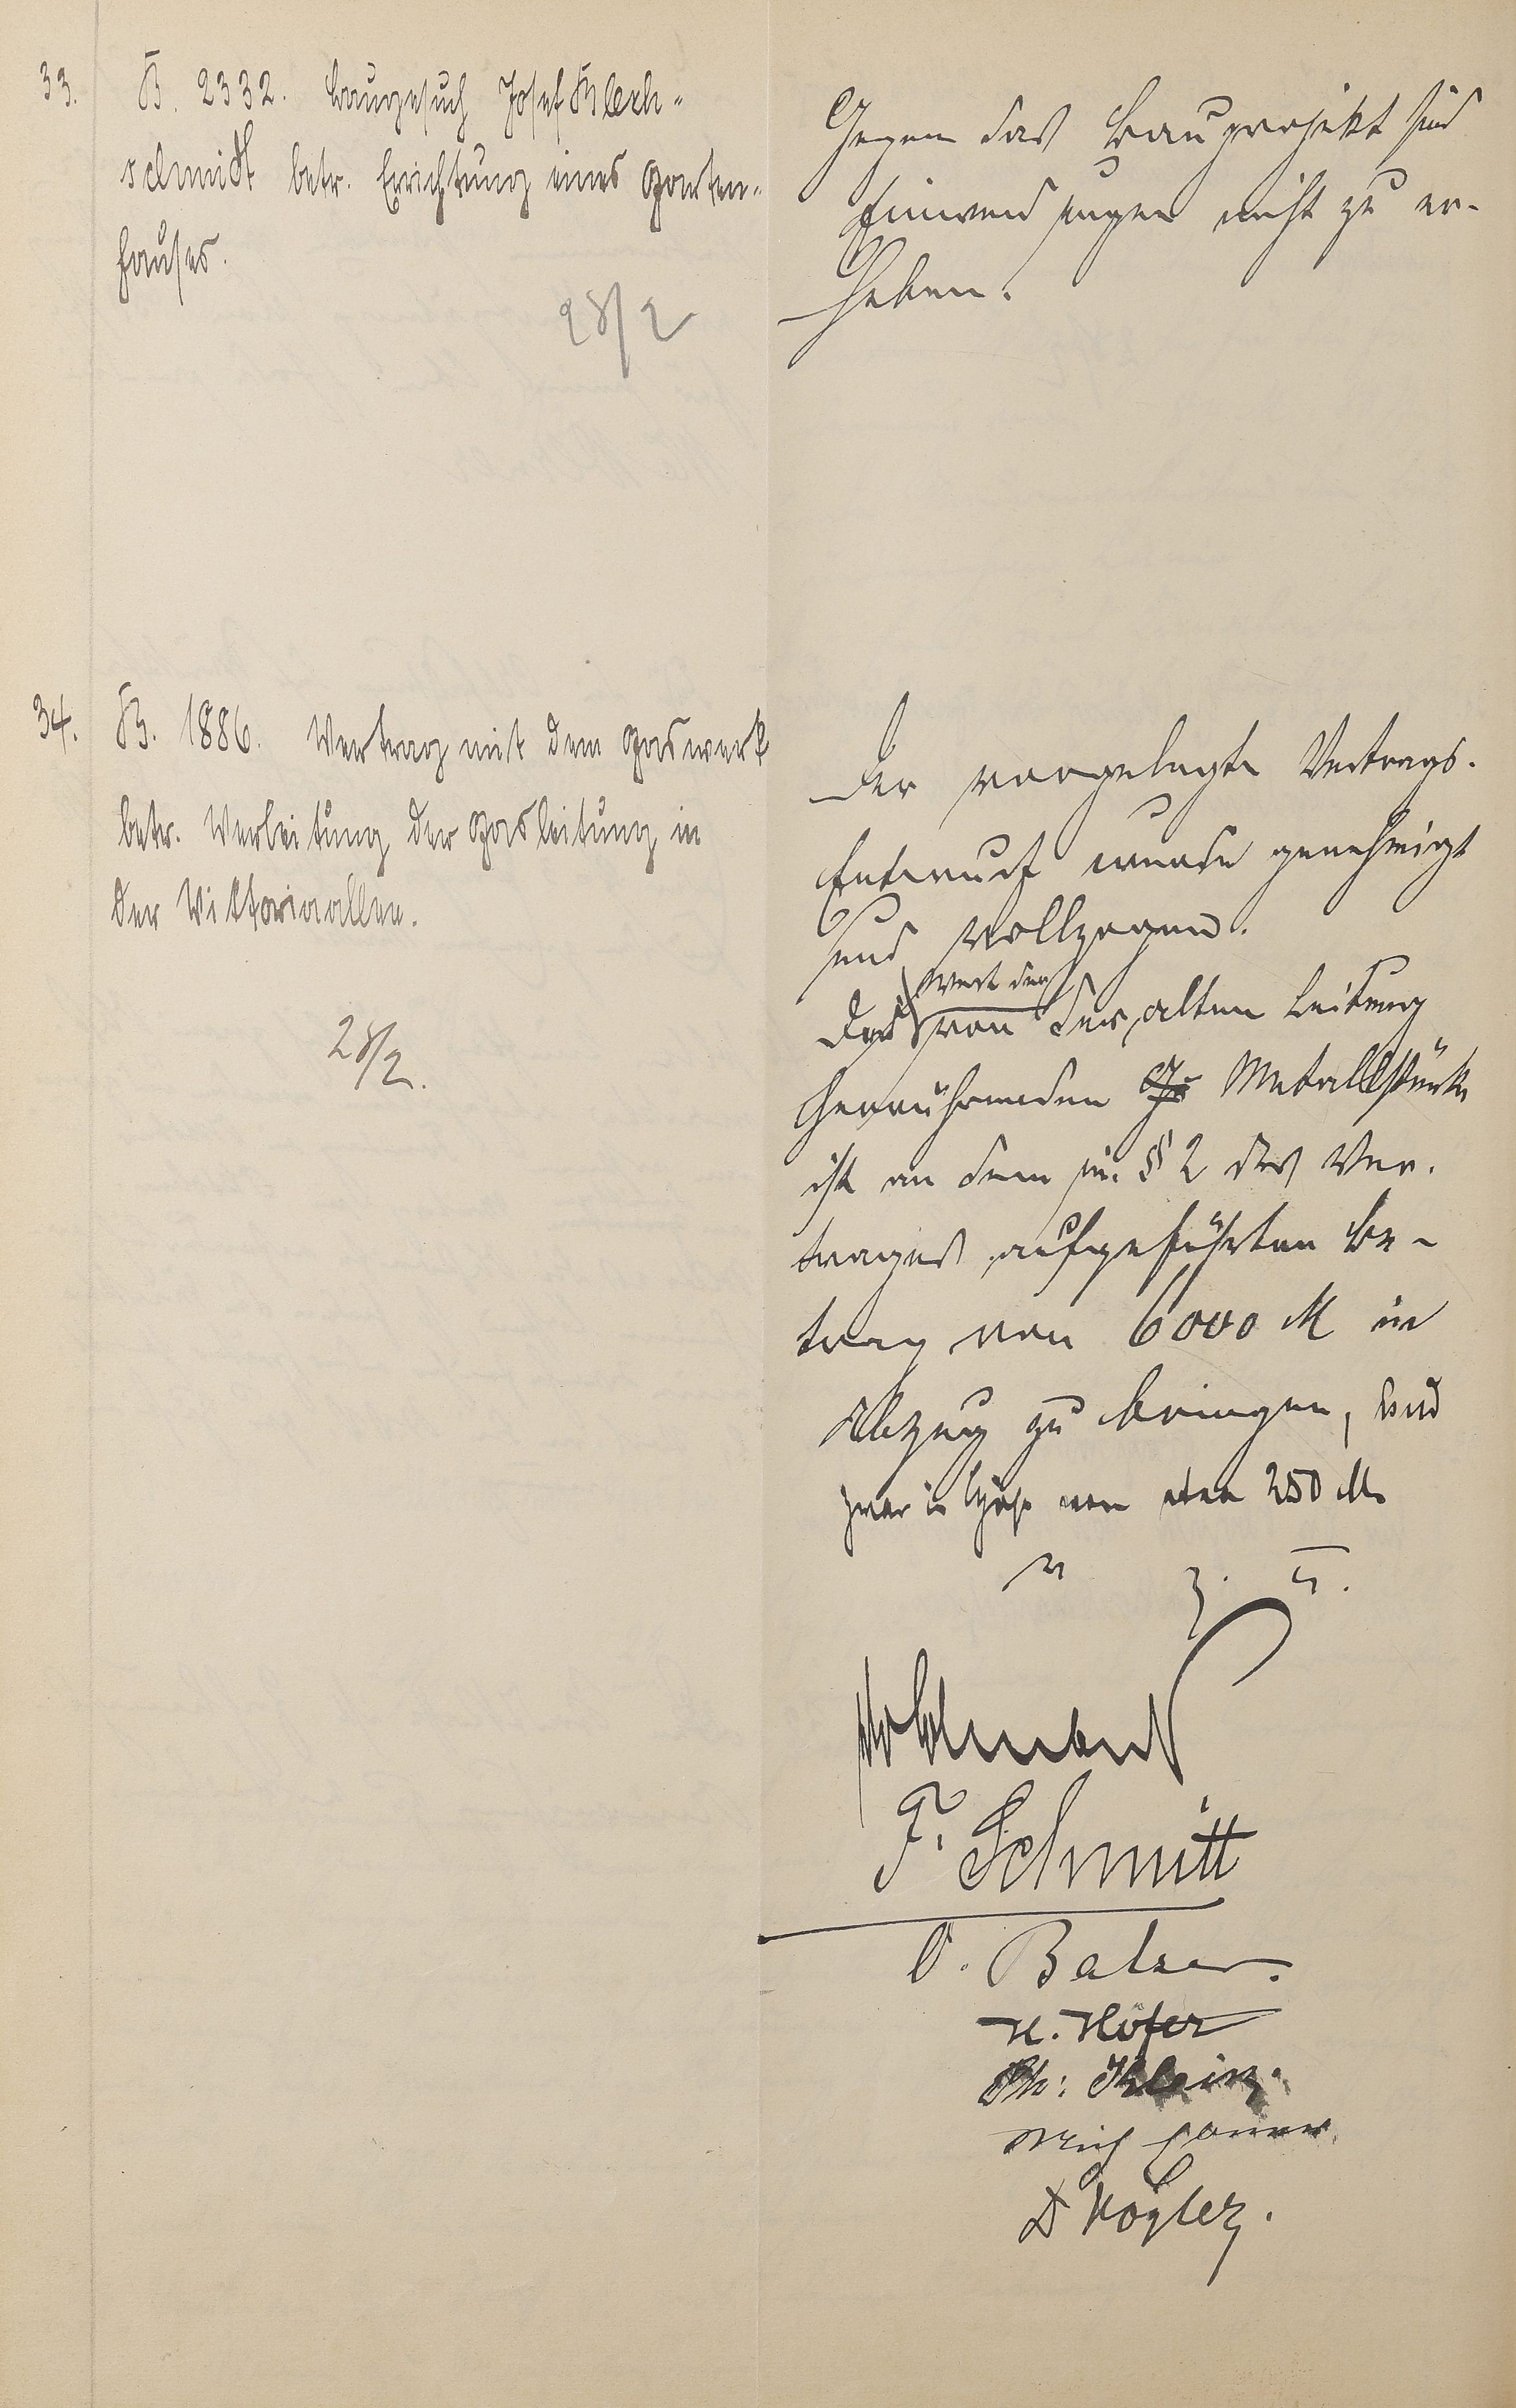 33. B. 2332. Baugesuch Josef Blech-
schmidt betr. Errichtung eines Garten-
hauses.
28/2
Gegen das Bauprojekt sind
Einwendungen nicht zu er-
heben.
34. B. 1886. Vertrag mit dem Gaswerk
betr. Verleitung der Gasleitung in
der Viktoriaallee.
28/2.
Der vorgelegte Vertrags-
Entwurf wurde genehmigt
und vollzogen.
Wert der
Der von der alten Leitung
herrührenden Metallstücke
ist an dem in § 2 des Ver-
trages aufgeführten Be-
trag von 6000 M in
Abzug zu bringen, und
zwar in Höhe von etwa 250 M.
F. Schmitt
O. Balser.
H. Höfer
Ph. Klein.
D Vogler.